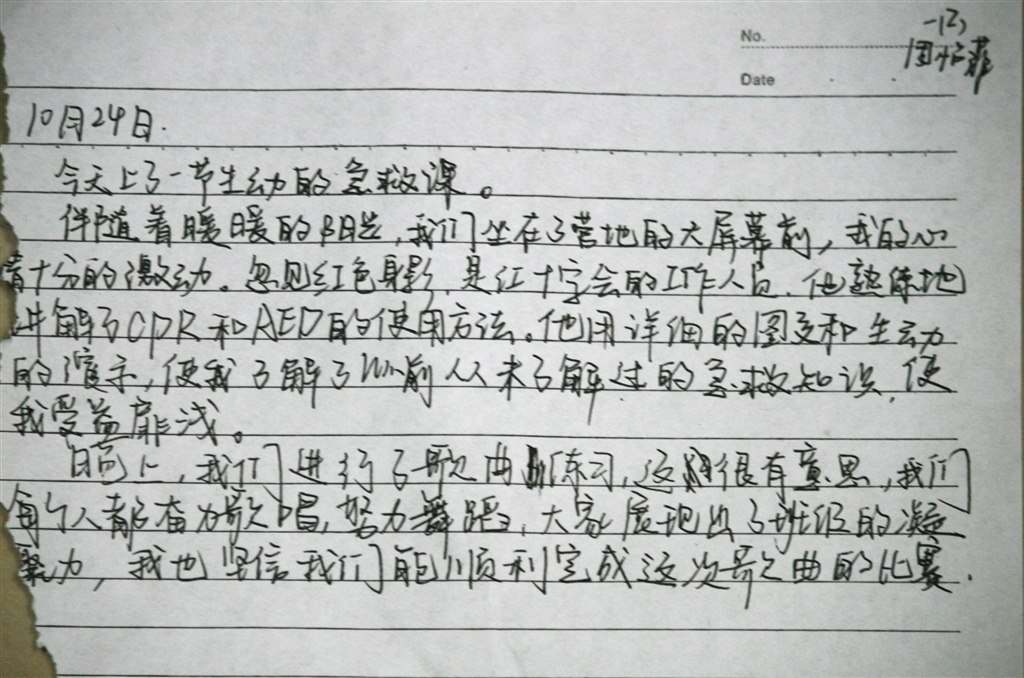 No.
一(2)
Date
10月24日.
今天上了一节生动的急救课。
伴随着暖暖的阳光,我们坐在了营地的大屏幕前,我的心
十分的激动。忽见红色身影,是红十字会的工作人员,他熟练地
讲解了CPR和AED的使用方法。他用详细的图文和生动
的演示,使我了解了以前从未了解过的急救知识,使
我受益匪浅。
晚上,我们进行了歌曲练习,这很有意思,我们
每个人都奋力歌唱,努力舞蹈,大家展现出了班级的凝
聚力,我也坚信我们能顺利完成这次歌曲的比赛.